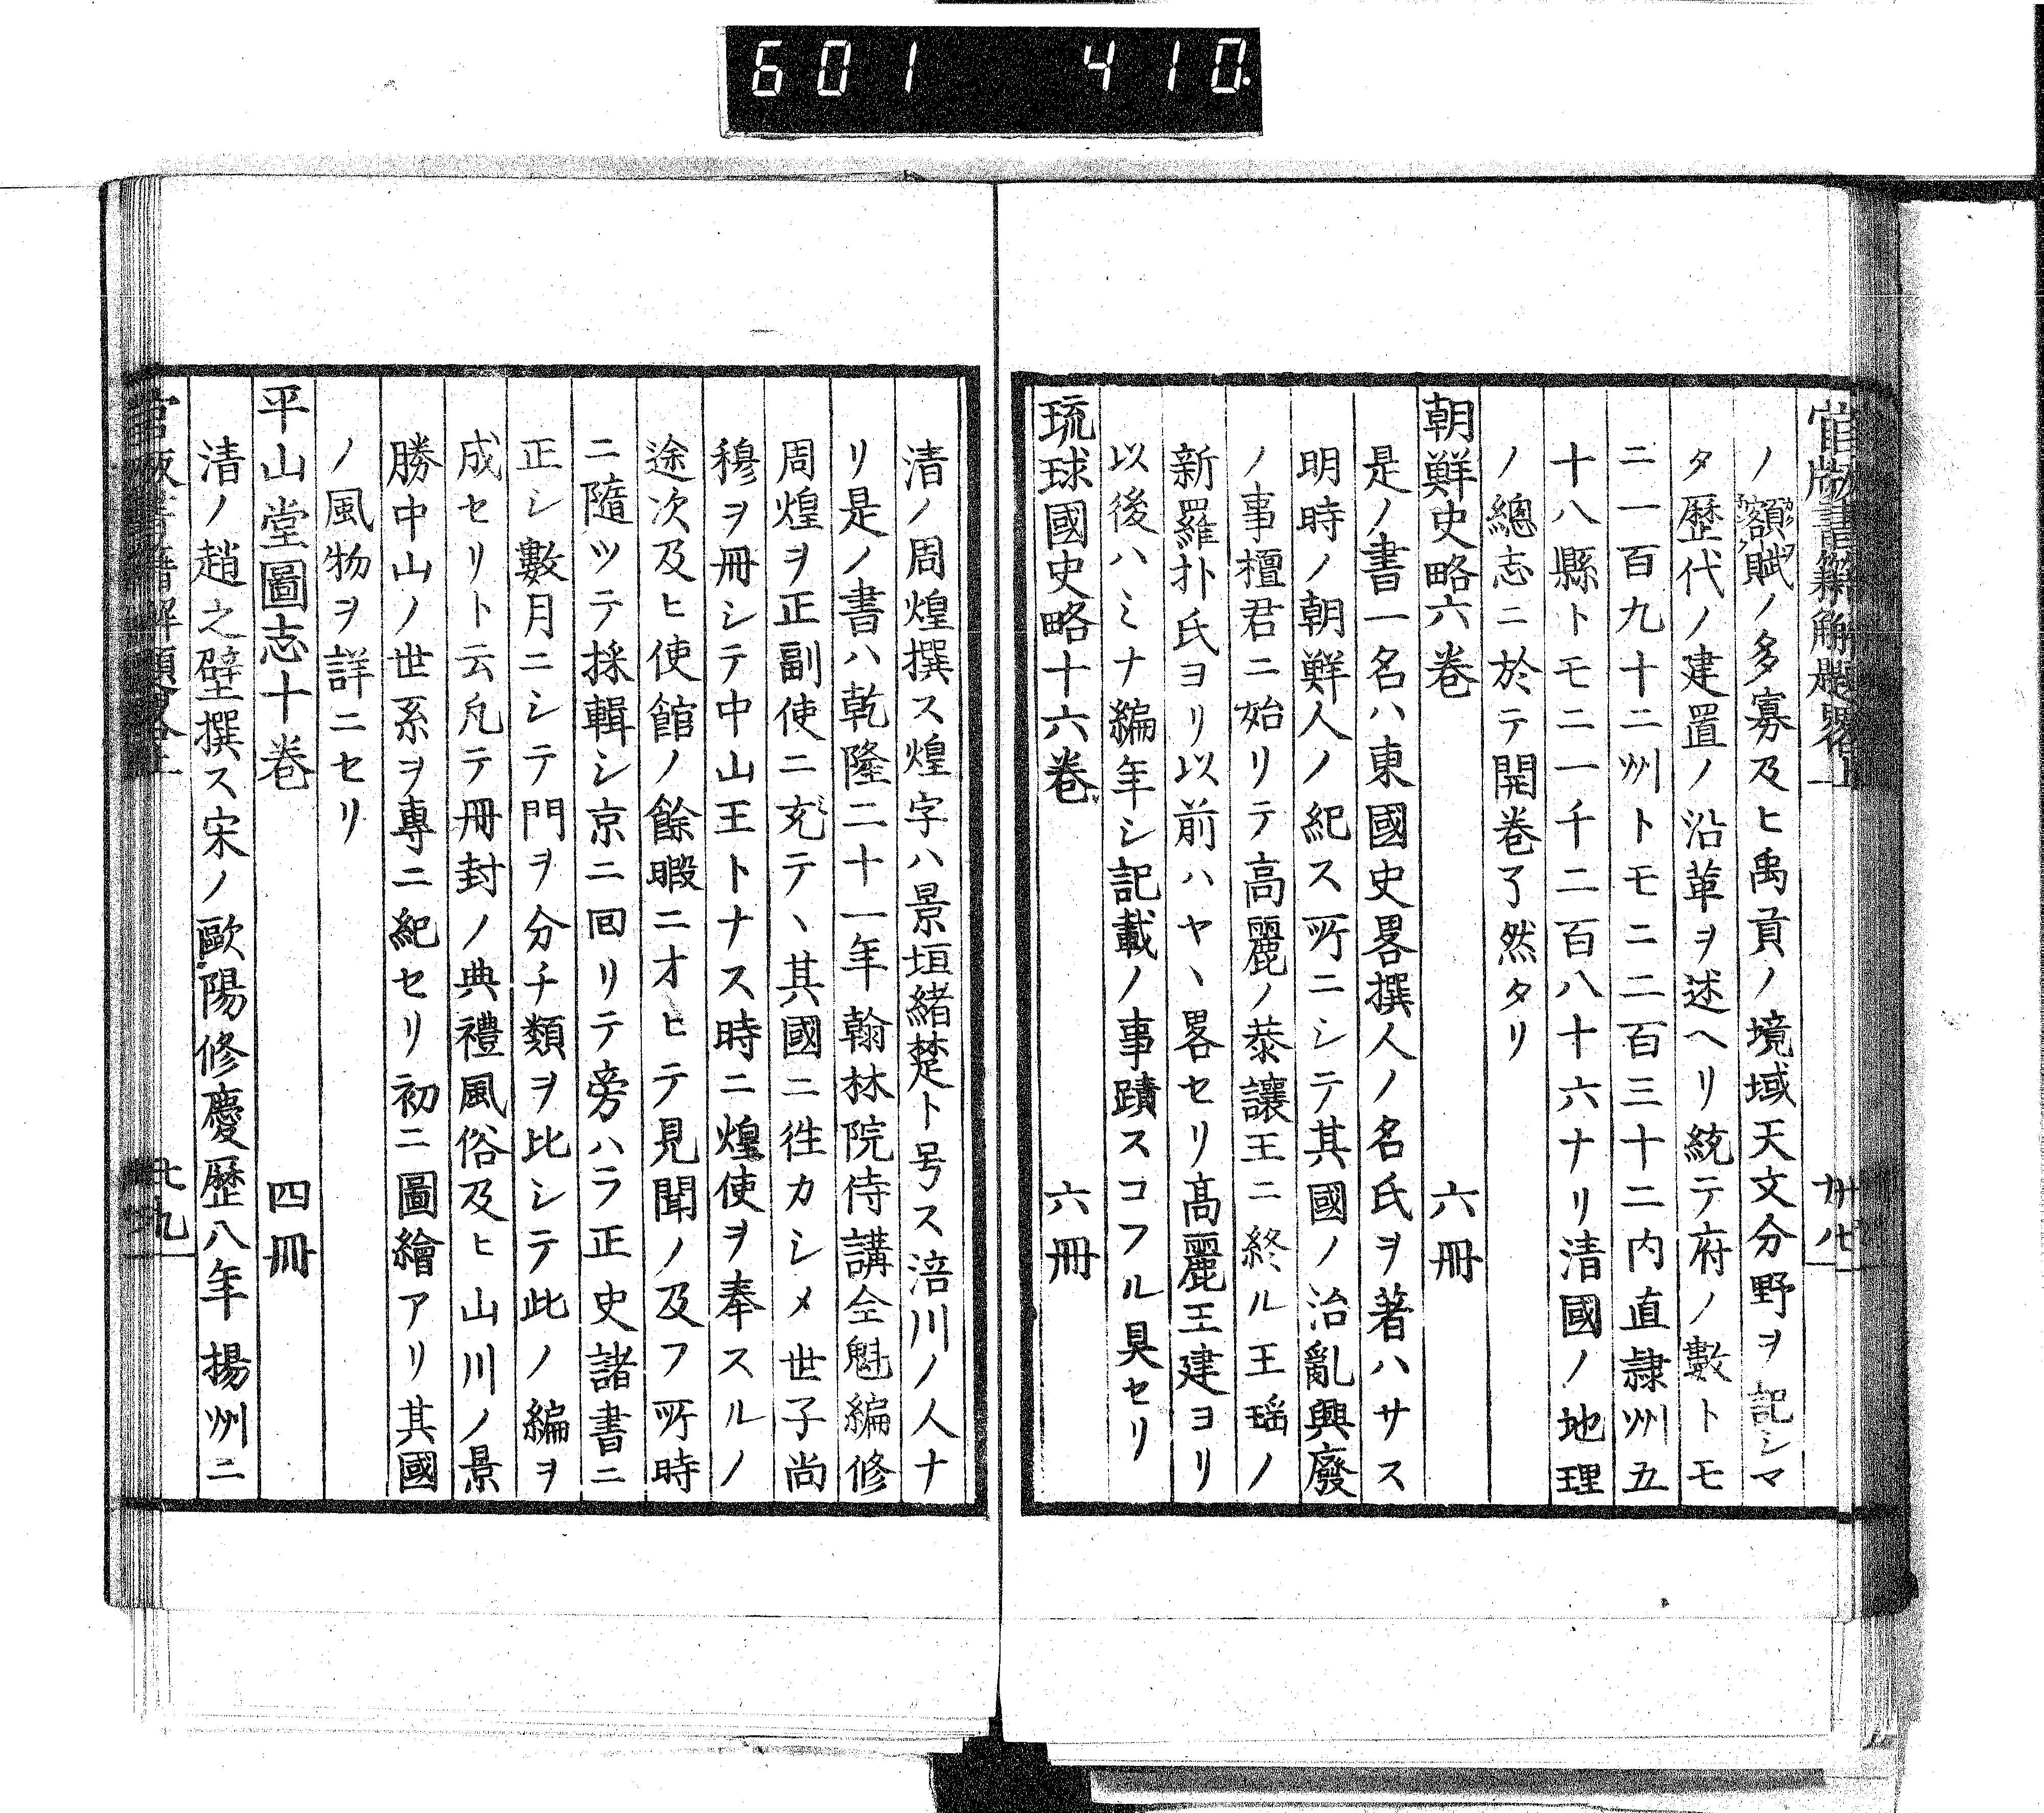 601 410.
官版書籍解題略上
ノ額賦ノ多寡及ヒ禹貢ノ境域天文分野ヲ記シマ
タ歴代ノ建置ノ沿革ヲ述ヘリ統テ府ノ數トモ
ニ一百九十二州トモニ二百三十二内直隷州五
十八縣トモニ一千二百八十六ナリ清國ノ地理
ノ總志ニ於テ開卷了然タリ
朝鮮史略六卷 六冊
是ノ書一名ハ東國史畧撰人ノ名氏ヲ著ハサス
明時ノ朝鮮人ノ紀ス所ニシテ其國ノ治亂興廢
ノ事檀君ニ始リテ高麗ノ恭讓王ニ終ル王瑶ノ
新羅朴氏ヨリ以前ハヤヽ畧セリ高麗王建ヨリ
以後ハミナ編年シ記載ノ事蹟スコフル具セリ
琉球國史略十六卷 六冊
清ノ周煌撰ス煌字ハ景垣緒楚ト号ス涪川ノ人ナ
リ是ノ書ハ乾隆二十一年翰林院侍講全魁編修
周煌ヲ正副使ニ充テヽ其國ニ徃カシメ世子尚
穆ヲ冊シテ中山王トナス時ニ煌使ヲ奉スルノ
途次及ヒ使館ノ餘暇ニオヒテ見聞ノ及フ所時
ニ隨ツテ採輯シ京ニ囘リテ旁ハラ正史諸書ニ
正シ數月ニシテ門ヲ分チ類ヲ比シテ此ノ編ヲ
成セリト云凡テ冊封ノ典禮風俗及ヒ山川ノ景
勝中山ノ世系ヲ專ニ紀セリ初ニ圖繪アリ其國
ノ風物ヲ詳ニセリ
平山堂圖志十卷 四冊
清ノ趙之壁撰ス宋ノ歐陽修慶歴八年揚州ニ